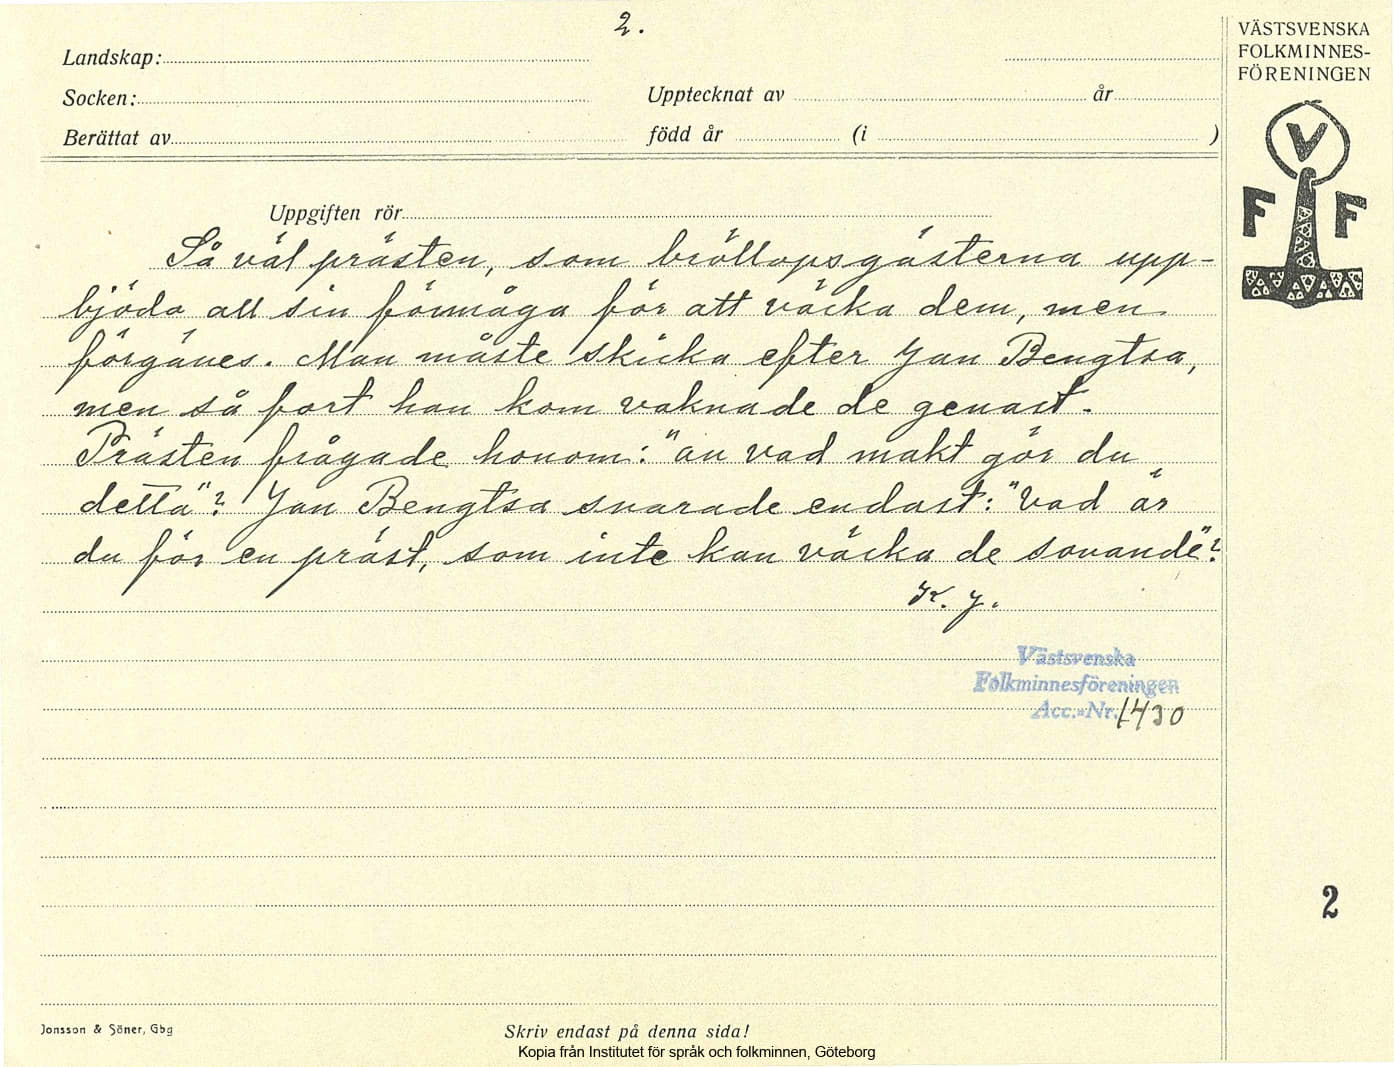 2.
VÄSTSVENSKA
FOLKMINNES-
FÖRENINGEN
V
F F
Landskap:
Socken: Upptecknat av år
Berättat av född år (i )
Uppgiften rör
Så väl prästen, som bröllopsgästerna upp-
bjödo all sin förmåga för att väcka dem, men
förgäves. Man måste skicka efter Jan Bengtsa,
men så fort han kom vaknade de genast.
Prästen frågade honom: "än vad makt gör du
detta"? Jan Bengtsa svarade endast: "Vad är
du för en präst, som inte kan väcka de sovande"?
K. J.
Västsvenska
Folkminnesföreningen
Acc.-Nr. 1430
2
Jonsson & Söner, Gbg
Skriv endast på denna sida!
Kopia från Institutet för språk och folkminnen, Göteborg